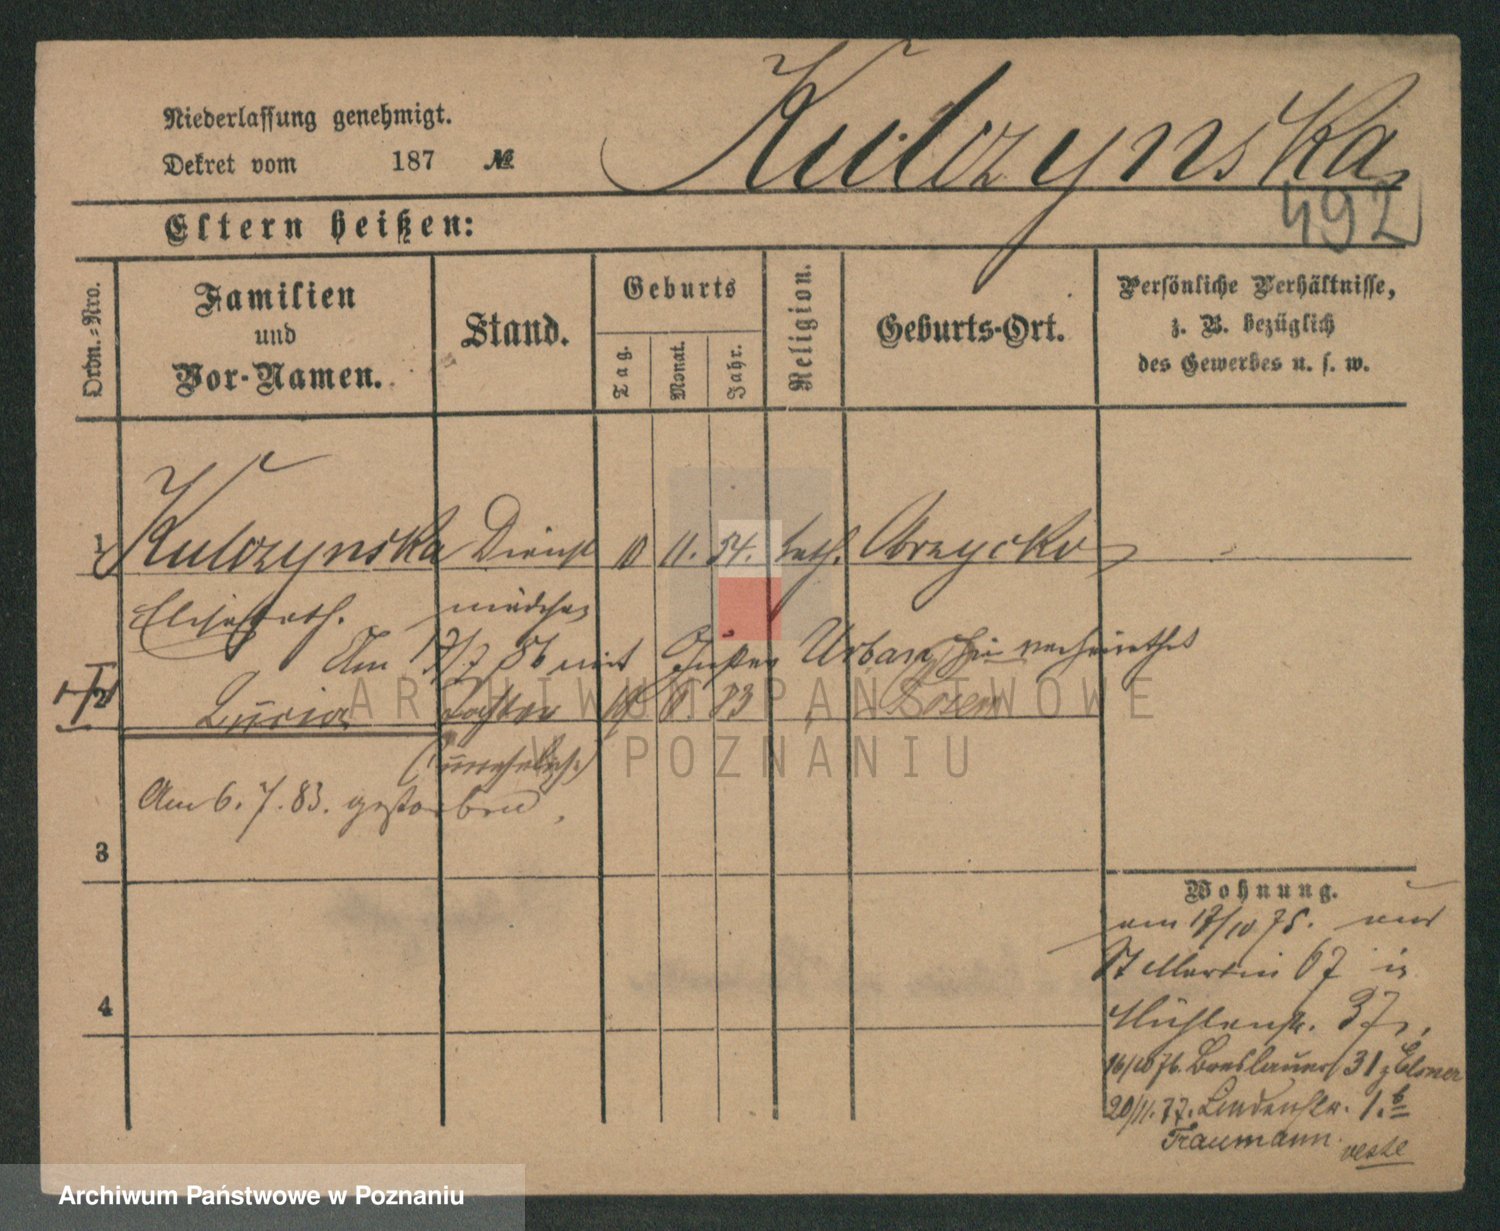 Niederlassung genehmigt.
Dekret vom 187 №
Kulczynska
492
Eltern heißen:
Ordn.-Nro.
Familien
und
Vor-Namen.
Stand.
Geburts
Tag.
Monat.
Jahr.
Religion.
Geburts-Ort.
Persönliche Verhältnisse,
z. B. bezüglich
des Gewerbes u. s. w.
1 Kulczynska Dienst 10 11. 54. kath. Obrzycko
Elisabeth. mädchen
Am 17/7 86 mit Urban hier verheirathet
2 Lucia Tochter 19 8. 83 Posen
(unehelich)
Am 6. 7. 83. gestorben
3
4
Wohnung.
am 17/10 75. aus
St Martin 67 in
Mühlenstr. 37
16/10 76. Breslauerstr 31 z Elsner
20/11. 77. Lindenstr. 1. b
Traumann
ARCHIWUM PAŃSTWOWE
W POZNANIU
Archiwum Państwowe w Poznaniu